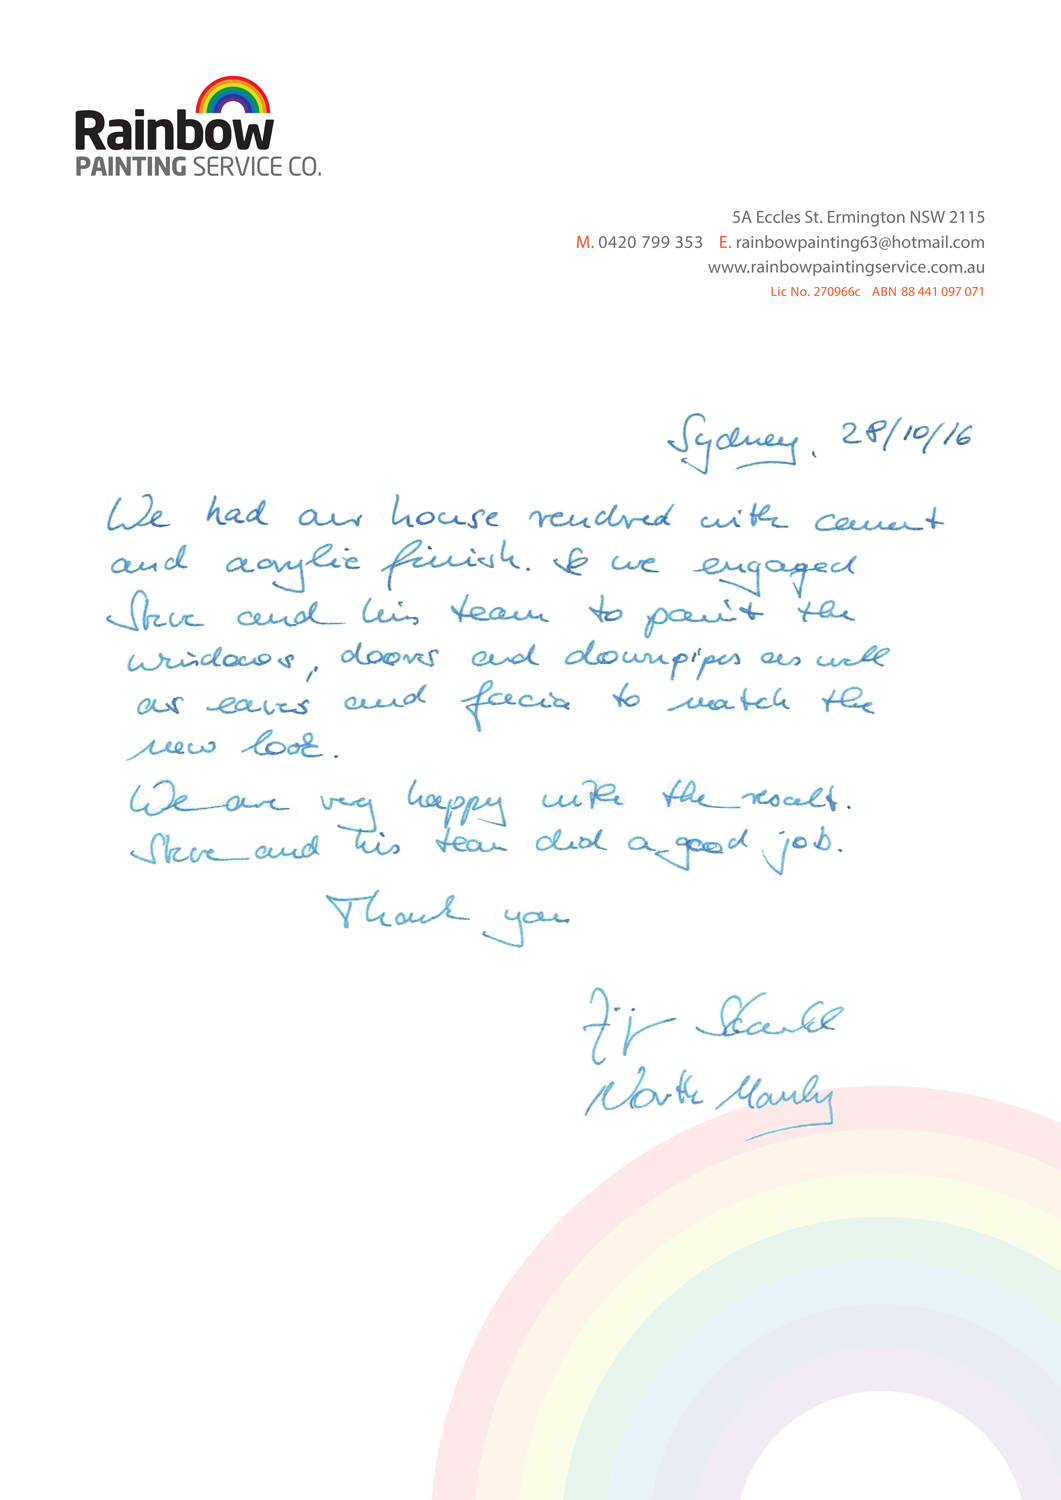 Rainbow
PAINTING SERVICE CO.
5A Eccles St. Ermington NSW 2115
M. 0420 799 353 E. rainbowpainting63@hotmail.com
www.rainbowpaintingservice.com.au
Lic No. 270966c ABN 88 441 097 071
Sydney, 28/10/16
We had our house rendred with cement
and acrylic finish. So we engaged
Steve and his team to paint the
windows, doors and downpipes as well
as eaves and facia to match the
new look.
We are very happy with the result.
Steve and his team did a good job.
Thank you
North Manly